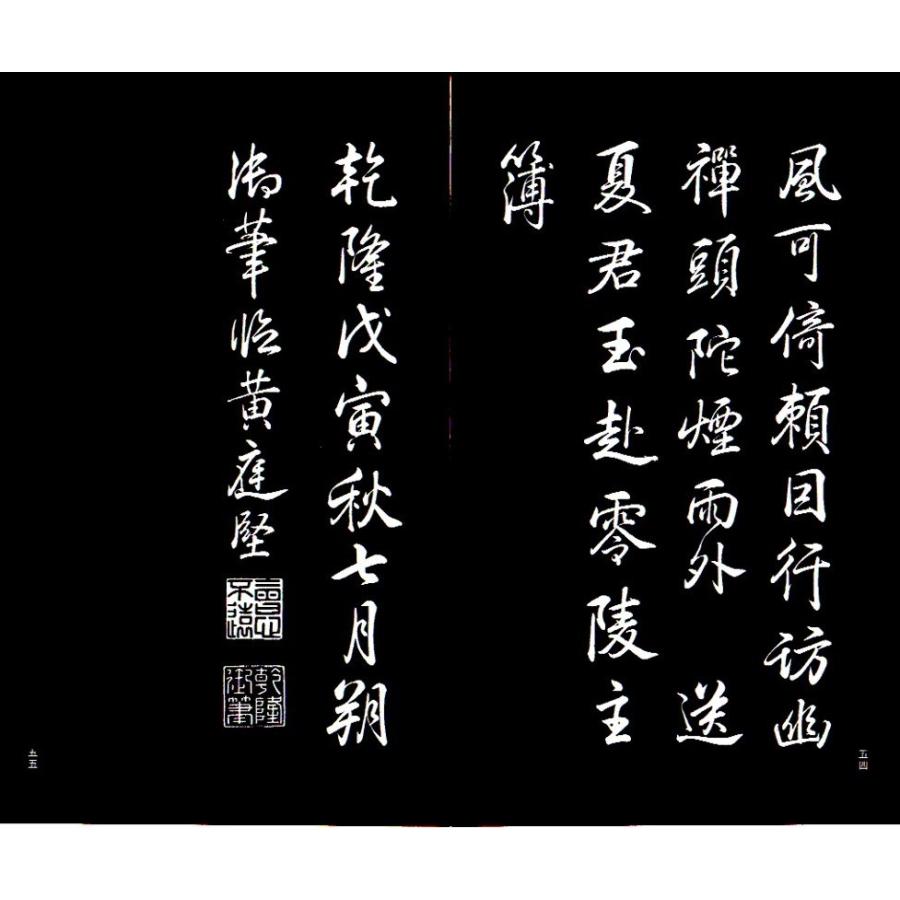 風可倚賴因行訪幽
禪頭陀煙雨外 送
夏君玉赴零陵主
簿
五四
乾隆戊寅秋七月朔
御筆臨黃庭堅
乾隆御筆
五五